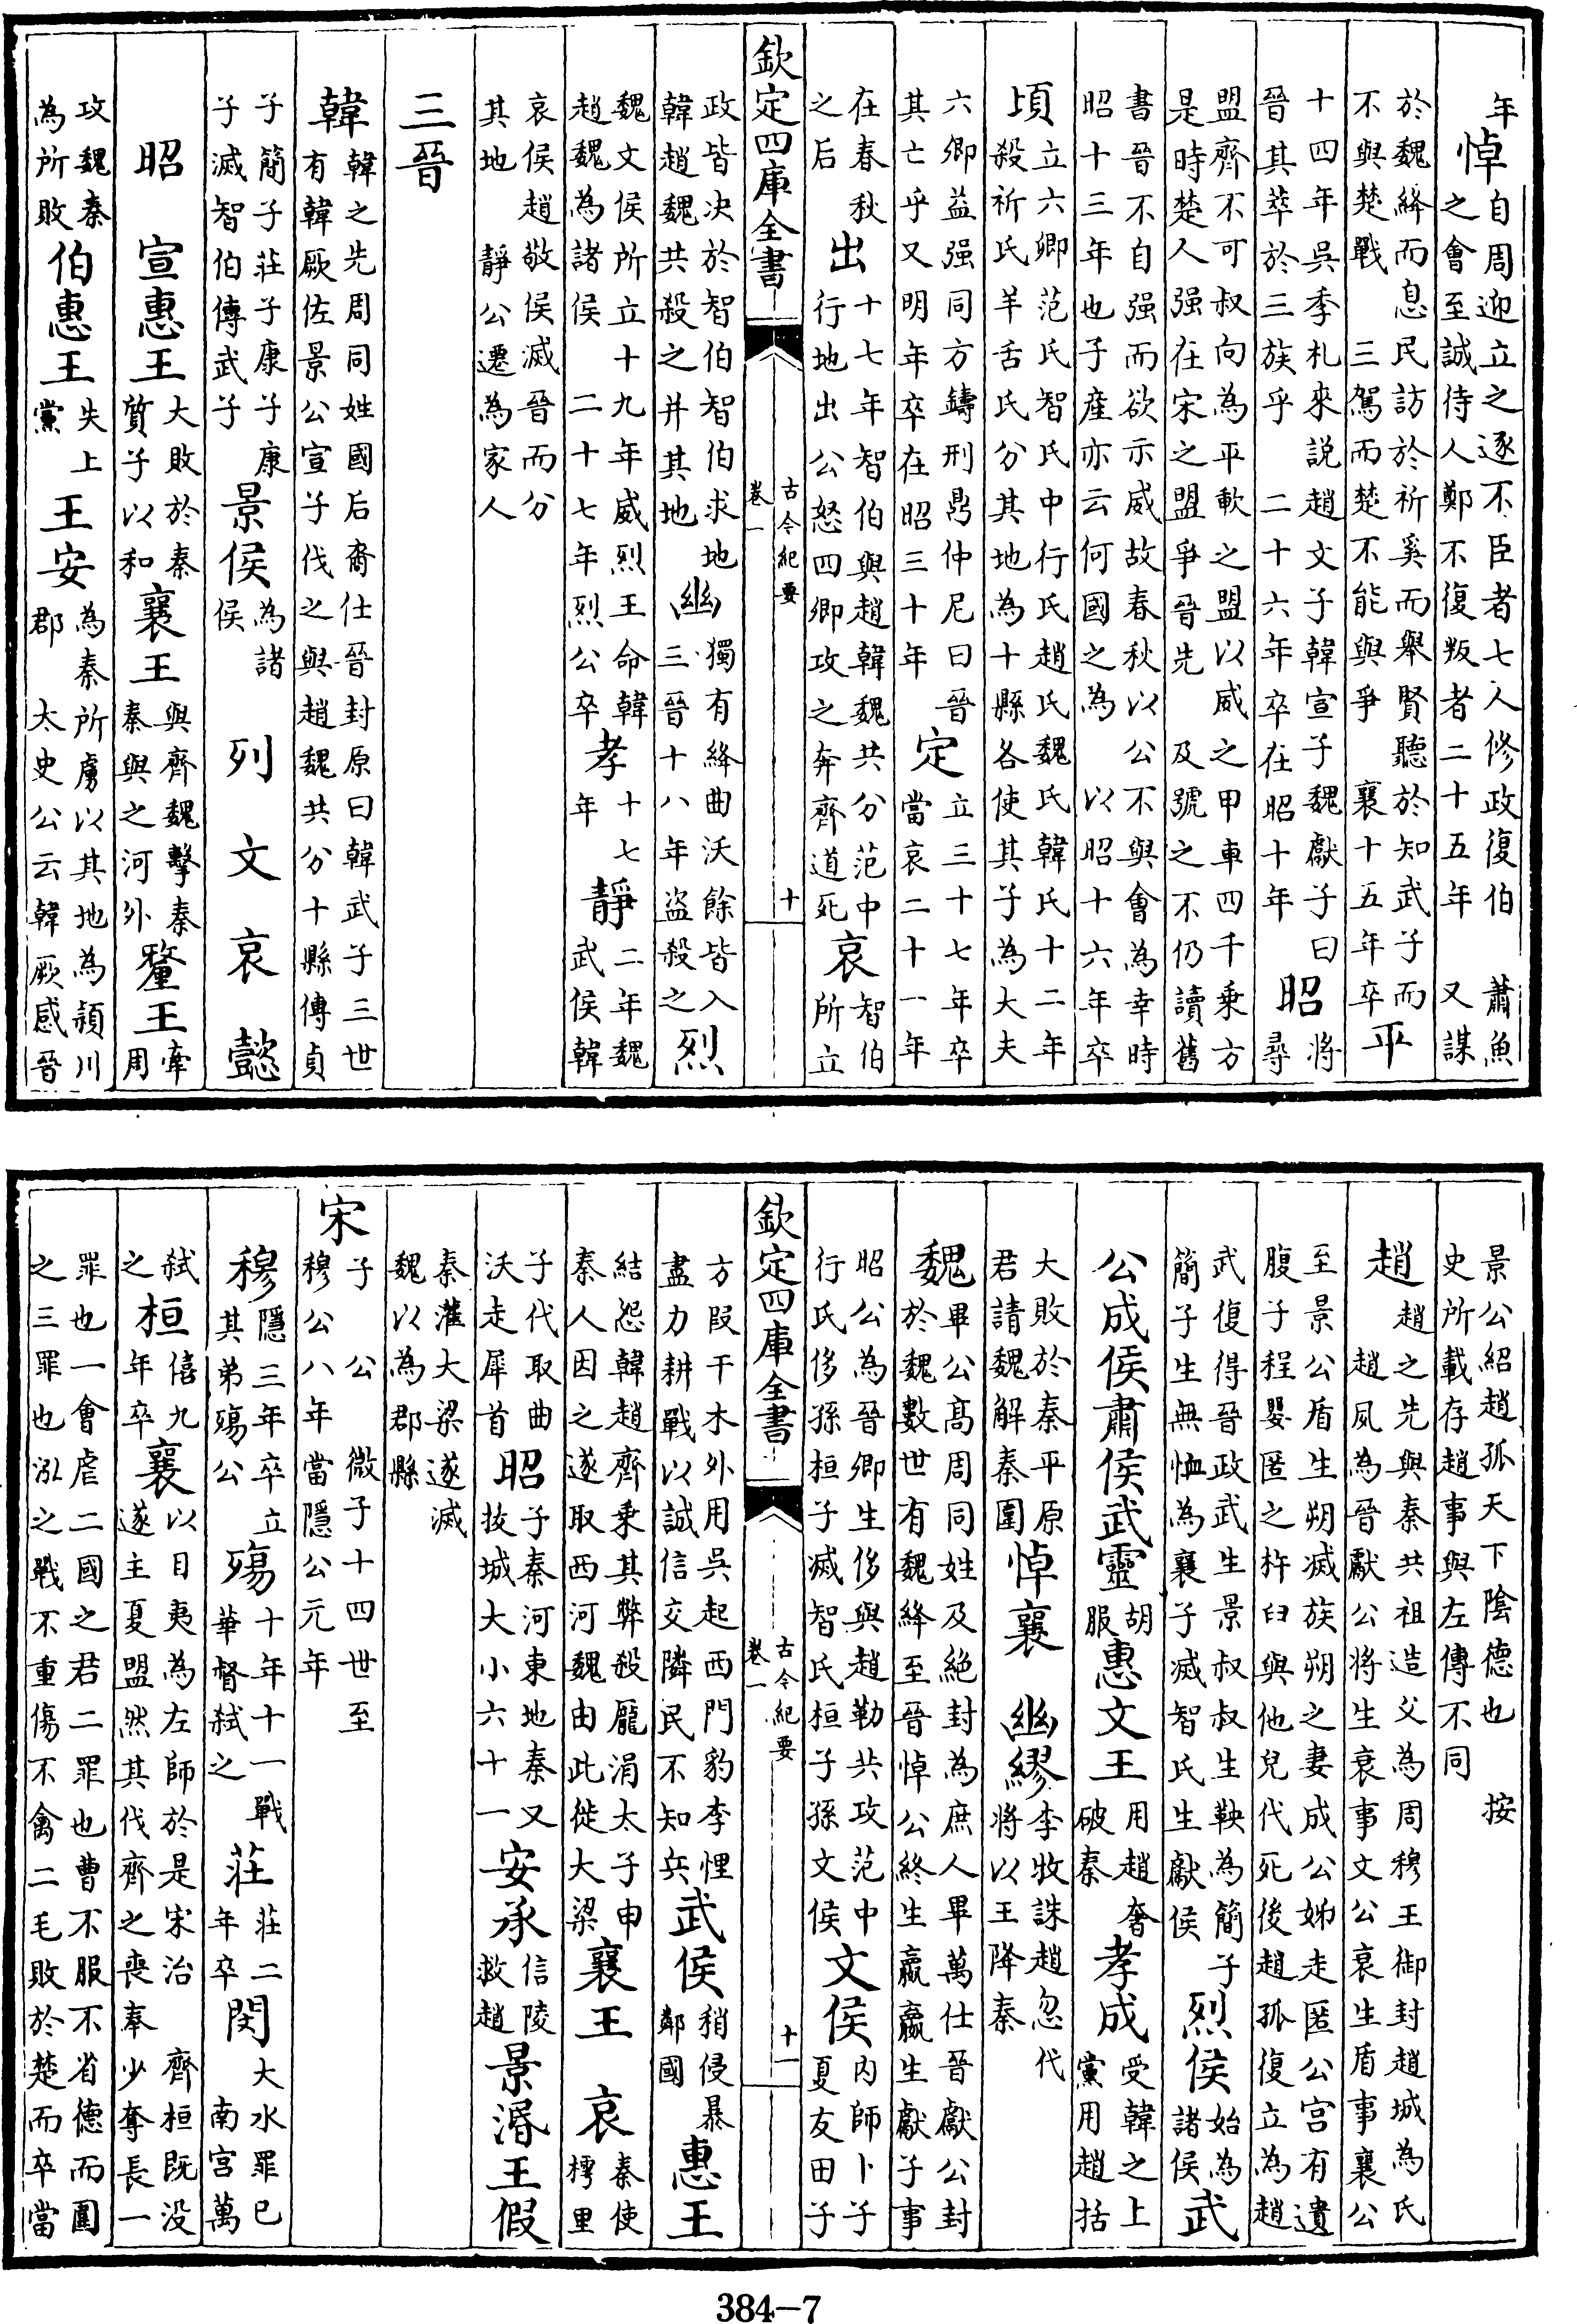 年悼自周迎立之逐不臣者七人修政復伯蕭魚之會至誠待人鄭不復叛者二十五年又謀
於魏絳而息民訪於祈奚而舉賢聽於知武子而不與楚戰三駕而楚不能與爭襄十五年卒平
十四年吳季札來説趙文子韓宣子魏獻子曰晉其萃於三族乎二十六年卒在昭十年昭將尋
盟齊不可叔向為平軟之盟以威之甲車四千乘方是時楚人强在宋之盟爭晉先及號之不仍讀舊
書晉不自强而欲示威故春秋以公不與會為幸時昭十三年也子産亦云何國之為以昭十六年卒
頃立六卿范氏智氏中行氏趙氏魏氏韓氏十二年殺祈氏羊舌氏分其地為十縣各使其子為大夫
六卿益强同方鑄刑鼎仲尼曰晉其亡乎又明年卒在昭三十年定立三十七年卒當哀二十一年
在春秋之后出十七年智伯與趙韓魏共分范中行地出公怒四卿攻之奔齊道死哀智伯所立
欽定四庫全書 古今紀要 卷一 十
政皆决於智伯智伯求地韓趙魏共殺之并其地幽獨有絳曲沃餘皆入三晉十八年盜殺之烈
魏文侯所立十九年威烈王命韓趙魏為諸侯二十七年烈公卒孝十七年靜二年魏武侯韓
哀侯趙敬侯滅晉而分其地靜公遷為家人
三晉
韓韓之先周同姓國后裔仕晉封原曰韓武子三世有韓厥佐景公宣子伐之與趙魏共分十縣傳貞
子簡子莊子康子康子滅智伯傳武子景侯為諸侯列文哀懿
昭宣惠王大敗於秦質子以和襄王與齊魏擊秦秦與之河外釐王率周
攻魏秦為所敗伯惠王失上黨王安為秦所虜以其地為潁川郡太史公云韓厥感晉
景公紹趙孤天下陰德也按史所載存趙事與左傳不同
趙趙之先與秦共祖造父為周穆王御封趙城為氏趙夙為晉獻公將生衰事文公衰生盾事襄公
至景公盾生朔滅族朔之妻成公姊走匿公宫有遺腹子程嬰匿之杵臼與他兒代死後趙孤復立為趙
武復得晉政武生景叔叔生鞅為簡子簡子生無恤為襄子滅智氏生獻侯烈侯始為諸侯武
公成侯肅侯武靈胡服惠文王用趙奢破秦孝成受韓之上黨用趙括
大敗於秦平原君請魏解秦圍悼襄幽繆李牧誅趙忽代將以王降秦
魏畢公高周同姓及絶封為庶人畢萬仕晉獻公封於魏數世有魏絳至晉悼公終生嬴嬴生獻子事
昭公為晉卿生侈與趙勒共攻范中行氏侈孫桓子滅智氏桓子孫文侯文侯内師卜子夏友田子
欽定四庫全書 古今紀要 卷一 十一
方段干木外用吳起西門豹李悝盡力耕戰以誠信交隣民不知兵武侯稍侵暴鄰國惠王
結怨韓趙齊乘其弊殺龐涓太子申秦人因之遂取西河魏由此徙大梁襄王哀秦使樗里
子代取曲沃走犀首昭子秦河東地秦又拔城大小六十一安承信陵救趙景湣王假
秦灌大梁遂滅魏以為郡縣
宋子公微子十四世至穆公八年當隱公元年
穆隱三年卒立其弟殤公殤十年十一戰華督弒之莊莊二年卒閔大水罪已南宫萬
弒之桓僖九年卒襄以目夷為左師於是宋治齊桓既没遂主夏盟然其伐齊之喪奉少奪長一
罪也一會虐二國之君二罪也曹不服不省德而圍之三罪也泓之戰不重傷不禽二毛敗於楚而卒當
384-7